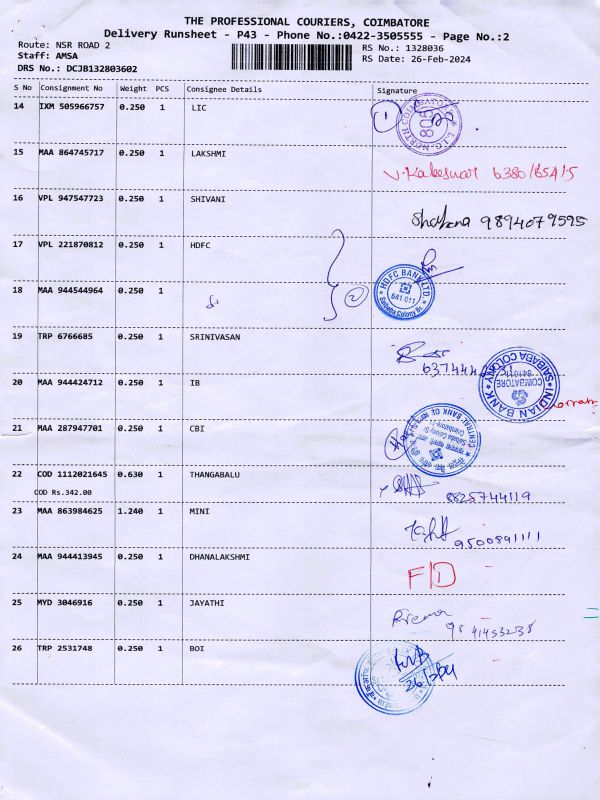 THE PROFESSIONAL COURIERS, COIMBATORE
Delivery Runsheet - P43 - Phone No.:0422-3505555 - Page No.:2
Route: NSR ROAD 2
Staff: AMSA
DRS No.: DCJB132803602
RS No.: 1328036
RS Date: 26-Feb-2024
S No Consignment No Weight PCS Consignee Details Signature
14 IXM 505966757 0.250 1 LIC 1
15 MAA 864745717 0.250 1 LAKSHMI
16 VPL 947547723 0.250 1 SHIVANI 9894079595
17 VPL 221870812 0.250 1 HDFC
HDFC BANK LTD.
641 011
Saibaba Colony Br.
18 MAA 944544964 0.250 1 2
19 TRP 6766685 0.250 1 SRINIVASAN
20 MAA 944424712 0.250 1 IB
INDIAN BANK
SAIBABA COLONY
COIMBATORE
641011
21 MAA 287947701 0.250 1 CBI
CENTRAL BANK OF
22 COD 1112021645 0.630 1 THANGABALU 8825744119
COD Rs.342.00
23 MAA 863984625 1.240 1 MINI 9500891111
24 MAA 944413945 0.250 1 DHANALAKSHMI F/D
25 MYD 3046916 0.250 1 JAYATHI
26 TRP 2531748 0.250 1 BOI